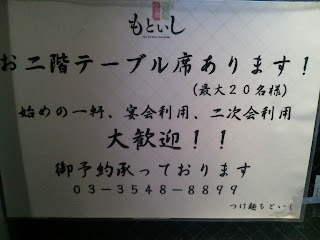 もといし
お二階テーブル席あります！
(最大20名様)
始めの一軒、宴会利用、二次会利用
大歓迎！！
御予約承っております
03-3548-8899
つけ麺もといし